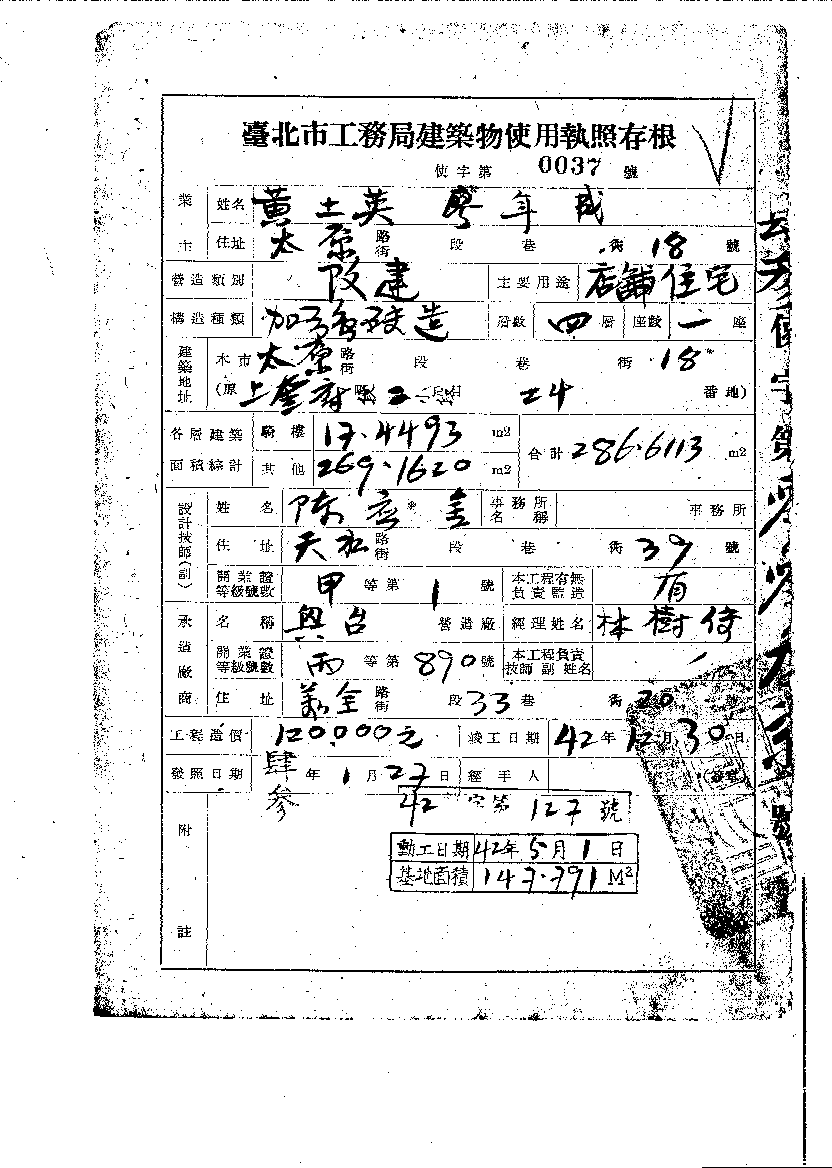 臺北市工務局建築物使用執照存根
使字第 0037 號
業主 姓名 黃土英 廖年成
住址 太原路街 段 巷 街 18 號
營造類別 改建 主要用途 店舖住宅
構造種類 加強磚造 層數 四層 座數 一座
建築地址 本市 太原路街 段 巷 街 18
(原 上奎府 2 24 番地)
各層建築面積總計 騎樓 17.4493 m2 合計 286.6113 m2
其他 269.1620 m2
設計技師(副) 姓名 陳 金 事務所名稱 事務所
住址 天 路街 段 巷 街 39 號
開業證等級號數 甲等第 1 號 本工程有無負責監造 有
承造廠商 名稱 興台 營造廠 經理姓名 林樹
開業證等級號數 丙等第 890 號 本工程負責技師副姓名
住址 全路街 段 33 巷 街 20
工程造價 120,000元 竣工日期 42年12月30日
發照日期 肆參年1月27日 經手人
42 字第 127 號
附註
動工日期 42年5月1日
基地面積 147.791 M²
使字第
號